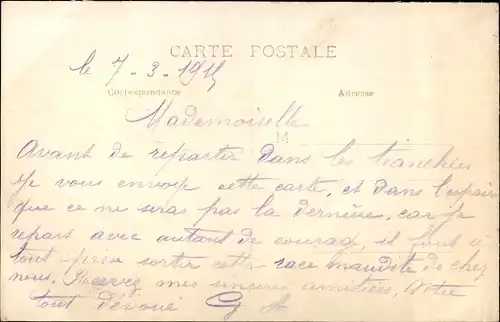 CARTE POSTALE
le 7-3-1915
Correspondance
Adresse
Mademoiselle
M
Avant de repartir dans les tranchées
Je vous envoye cette carte, et dans l'espoir
que ce ne seras pas la dernière, car je
repart avec autant de courag, il faut a
tout prix sortir cette race maudite de chez
nous. Recevez mes sincères amitiées. Votre
tout dévoué G A